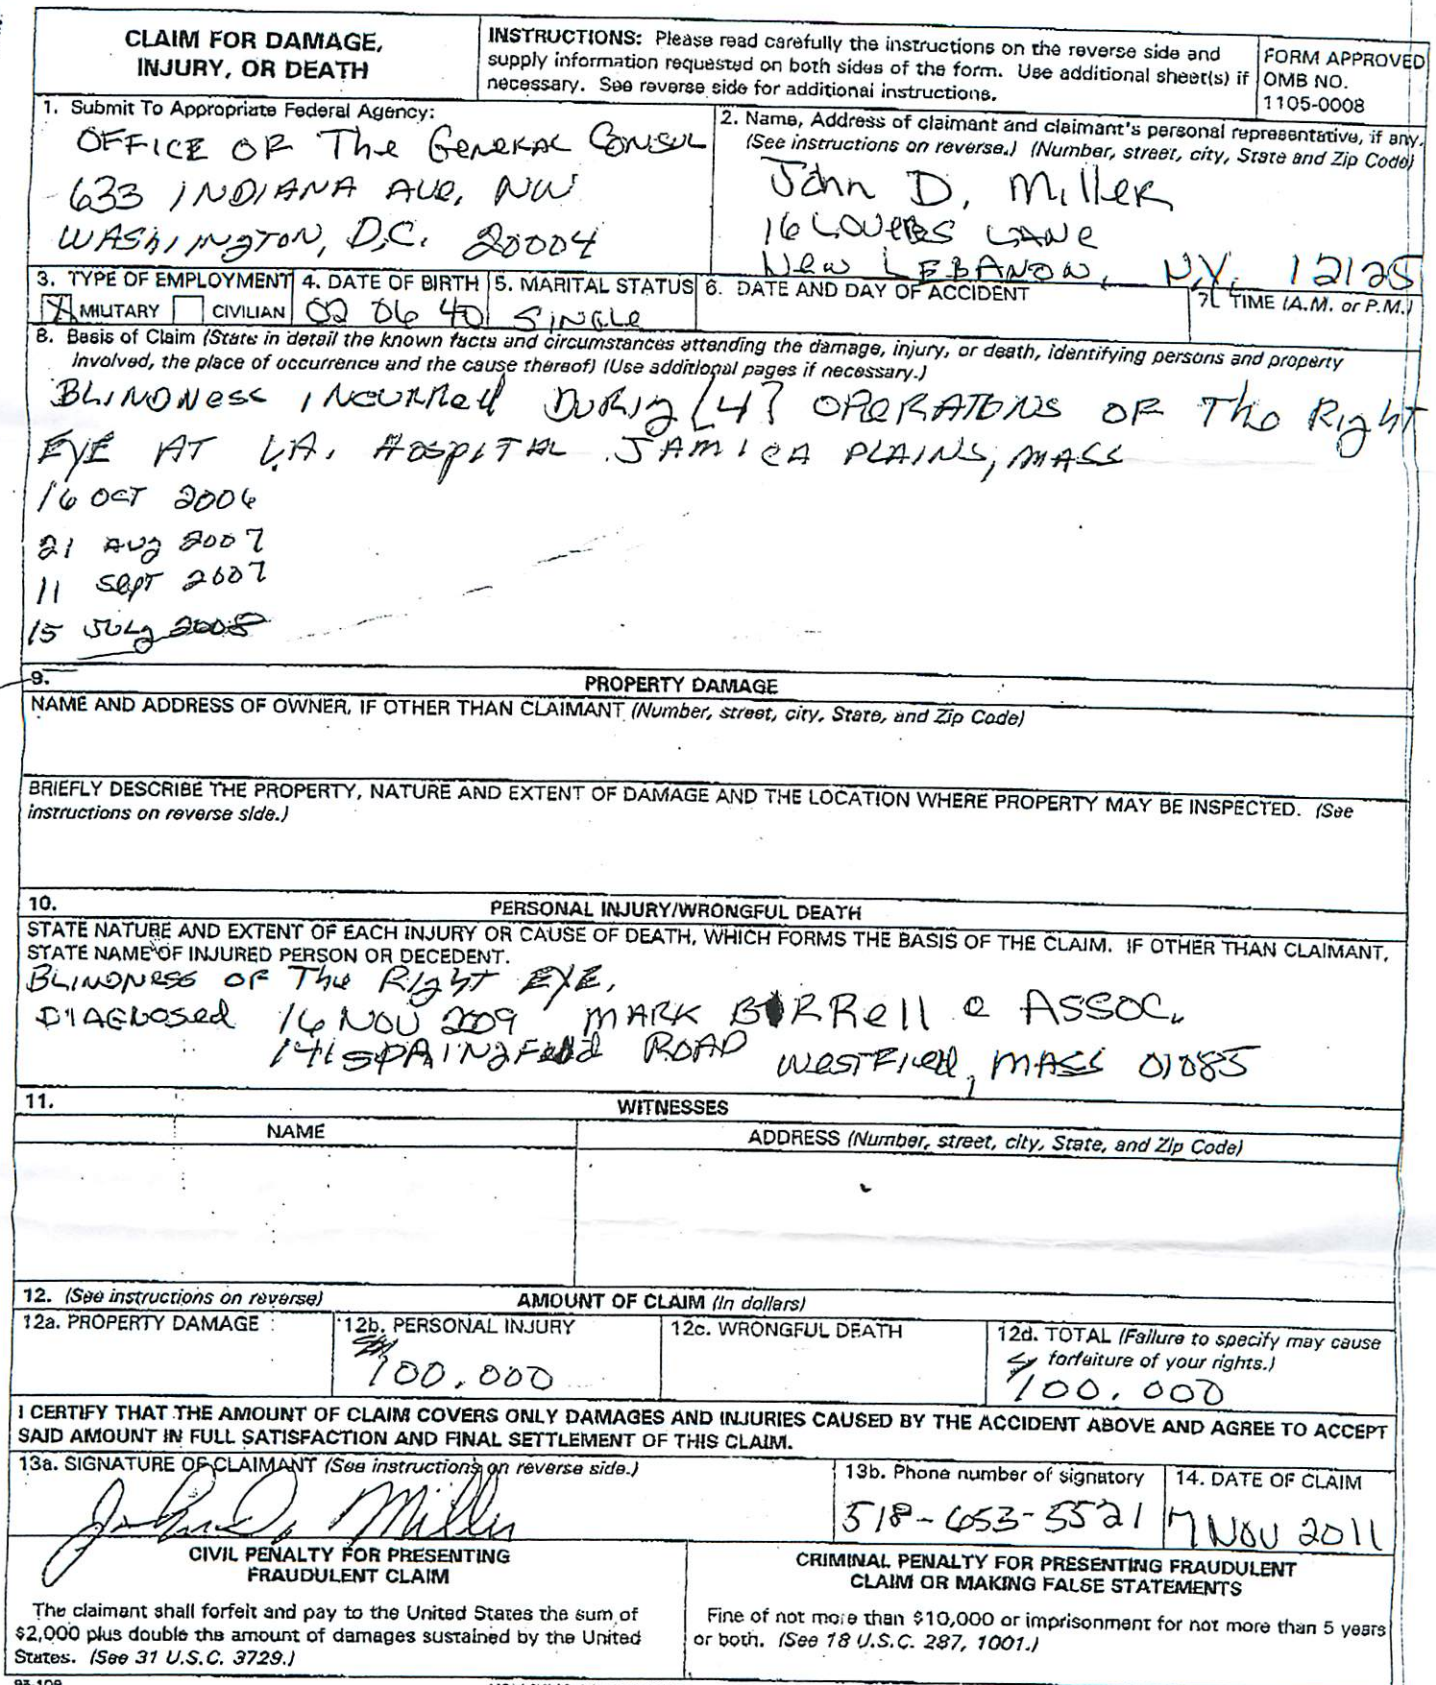 CLAIM FOR DAMAGE,
INJURY, OR DEATH
INSTRUCTIONS: Please read carefully the instructions on the reverse side and
supply information requested on both sides of the form. Use additional sheet(s) if
necessary. See reverse side for additional instructions.
FORM APPROVED
OMB NO.
1105-0008
1. Submit To Appropriate Federal Agency:
OFFICE OF The GeneRAL CONSUL
633 INDIANA AVe, NW
WASHINgTON, D.C. 20004
2. Name, Address of claimant and claimant's personal representative, if any.
(See instructions on reverse.) (Number, street, city, State and Zip Code)
John D. Miller
16 LOVERS LANe
New LEBANON, N.Y. 12125
3. TYPE OF EMPLOYMENT
X MILITARY CIVILIAN
4. DATE OF BIRTH
02 06 40
5. MARITAL STATUS
SINgLe
6. DATE AND DAY OF ACCIDENT
7. TIME (A.M. or P.M.)
8. Basis of Claim (State in detail the known facts and circumstances attending the damage, injury, or death, identifying persons and property
involved, the place of occurrence and the cause thereof) (Use additional pages if necessary.)
BLINDNess INCURRed DURIg [4] OPeRATONS OF The RighT
EYE AT V.A. HospITAL JAMICA PLAINS, MASS
16 OCT 2006
21 AUg 2007
11 SepT 2007
15 JULy 2008
9. PROPERTY DAMAGE
NAME AND ADDRESS OF OWNER, IF OTHER THAN CLAIMANT (Number, street, city, State, and Zip Code)
BRIEFLY DESCRIBE THE PROPERTY, NATURE AND EXTENT OF DAMAGE AND THE LOCATION WHERE PROPERTY MAY BE INSPECTED. (See
instructions on reverse side.)
10. PERSONAL INJURY/WRONGFUL DEATH
STATE NATURE AND EXTENT OF EACH INJURY OR CAUSE OF DEATH, WHICH FORMS THE BASIS OF THE CLAIM. IF OTHER THAN CLAIMANT,
STATE NAME OF INJURED PERSON OR DECEDENT.
BLINDNESS OF The RighT EYE,
DIAGNosed 16 NOV 2009 MARK BURRell & ASSOC.
141 SPRINgField ROAD WesTField, MASS 01085
11. WITNESSES
NAME
ADDRESS (Number, street, city, State, and Zip Code)
12. (See instructions on reverse) AMOUNT OF CLAIM (in dollars)
12a. PROPERTY DAMAGE
12b. PERSONAL INJURY
100.000
12c. WRONGFUL DEATH
12d. TOTAL (Failure to specify may cause
forfeiture of your rights.)
$100.000
I CERTIFY THAT THE AMOUNT OF CLAIM COVERS ONLY DAMAGES AND INJURIES CAUSED BY THE ACCIDENT ABOVE AND AGREE TO ACCEPT
SAID AMOUNT IN FULL SATISFACTION AND FINAL SETTLEMENT OF THIS CLAIM.
13a. SIGNATURE OF CLAIMANT (See instructions on reverse side.)
John D. Miller
13b. Phone number of signatory
518-653-5521
14. DATE OF CLAIM
7 NOV 2011
CIVIL PENALTY FOR PRESENTING
FRAUDULENT CLAIM
The claimant shall forfeit and pay to the United States the sum of
$2,000 plus double the amount of damages sustained by the United
States. (See 31 U.S.C. 3729.)
CRIMINAL PENALTY FOR PRESENTING FRAUDULENT
CLAIM OR MAKING FALSE STATEMENTS
Fine of not more than $10,000 or imprisonment for not more than 5 years
or both. (See 18 U.S.C. 287, 1001.)